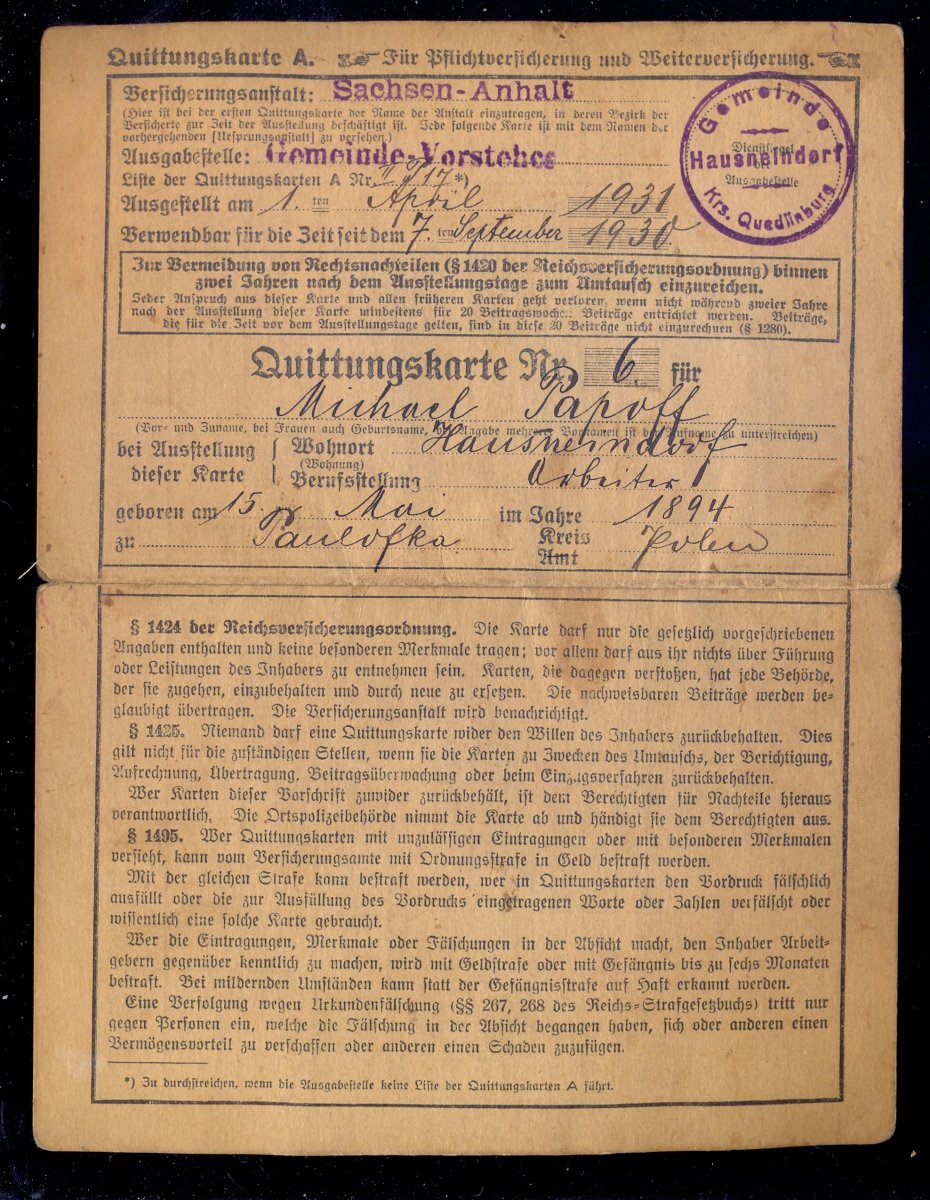 Quittungskarte A. Für Pflichtversicherung und Weiterversicherung.
Versicherungsanstalt: Sachsen-Anhalt
(Hier ist bei der ersten Quittungskarte der Name der Anstalt einzutragen, in deren Bezirk der
Versicherte zur Zeit der Ausstellung beschäftigt ist. Jede folgende Karte ist mit dem Namen der
vorhergehenden [Ursprungsanstalt] zu versehen.)
Ausgabestelle: Gemeinde-Vorsteher
Liste der Quittungskarten A Nr. 17 *)
Ausgestellt am 1. ten April 1931
Verwendbar für die Zeit seit dem 7. ten September 1930
Gemeinde
Dienstsiegel
der
Hausneindorf
Ausgabestelle
Krs. Quedlinburg
Zur Vermeidung von Rechtsnachteilen (§ 1420 der Reichsversicherungsordnung) binnen
zwei Jahren nach dem Ausstellungstage zum Umtausch einzureichen.
Jeder Anspruch aus dieser Karte und allen früheren Karten geht verloren, wenn nicht während zweier Jahre
nach der Ausstellung dieser Karte mindestens für 20 Beitragswochen Beiträge entrichtet werden. Beiträge,
die für die Zeit vor dem Ausstellungstage gelten, sind in diese 20 Beiträge nicht einzurechnen (§ 1280).
Quittungskarte Nr. 6. für
Michael Papoff
(Vor- und Zuname, bei Frauen auch Geburtsname, bei Angabe mehrerer Vornamen ist der Rufname zu unterstreichen)
bei Ausstellung dieser Karte
Wohnort Hausneindorf
(Wohnung)
Berufsstellung Arbeiter
geboren am 15 Mai im Jahre 1894
zu Paulofka Kreis Polen
Amt
§ 1424 der Reichsversicherungsordnung. Die Karte darf nur die gesetzlich vorgeschriebenen
Angaben enthalten und keine besonderen Merkmale tragen; vor allem darf aus ihr nichts über Führung
oder Leistungen des Inhabers zu entnehmen sein. Karten, die dagegen verstoßen, hat jede Behörde,
der sie zugehen, einzubehalten und durch neue zu ersetzen. Die nachweisbaren Beiträge werden be-
glaubigt übertragen. Die Versicherungsanstalt wird benachrichtigt.
§ 1425. Niemand darf eine Quittungskarte wider den Willen des Inhabers zurückbehalten. Dies
gilt nicht für die zuständigen Stellen, wenn sie die Karten zu Zwecken des Umtauschs, der Berichtigung,
Aufrechnung, Übertragung, Beitragsüberwachung oder beim Einzugsverfahren zurückbehalten.
Wer Karten dieser Vorschrift zuwider zurückbehält, ist dem Berechtigten für Nachteile hieraus
verantwortlich. Die Ortspolizeibehörde nimmt die Karte ab und händigt sie dem Berechtigten aus.
§ 1495. Wer Quittungskarten mit unzulässigen Eintragungen oder mit besonderen Merkmalen
versieht, kann vom Versicherungsamte mit Ordnungsstrafe in Geld bestraft werden.
Mit der gleichen Strafe kann bestraft werden, wer in Quittungskarten den Vordruck fälschlich
ausfüllt oder die zur Ausfüllung des Vordrucks eingetragenen Worte oder Zahlen verfälscht oder
wissentlich eine solche Karte gebraucht.
Wer die Eintragungen, Merkmale oder Fälschungen in der Absicht macht, den Inhaber Arbeit-
gebern gegenüber kenntlich zu machen, wird mit Geldstrafe oder mit Gefängnis bis zu sechs Monaten
bestraft. Bei mildernden Umständen kann statt der Gefängnisstrafe auf Haft erkannt werden.
Eine Verfolgung wegen Urkundenfälschung (§§ 267, 268 des Reichs-Strafgesetzbuchs) tritt nur
gegen Personen ein, welche die Fälschung in der Absicht begangen haben, sich oder anderen einen
Vermögensvorteil zu verschaffen oder anderen einen Schaden zuzufügen.
*) Zu durchstreichen, wenn die Ausgabestelle keine Liste der Quittungskarten A führt.